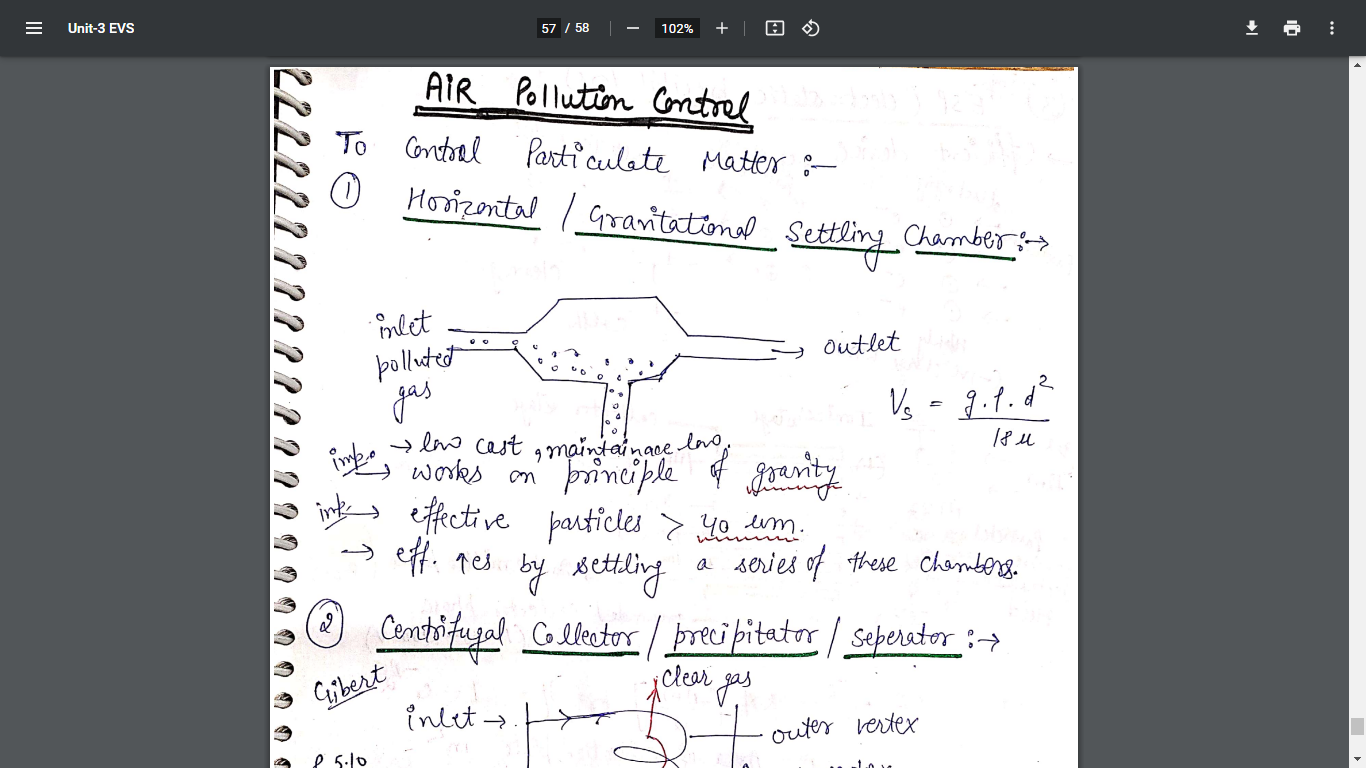 Unit-3 EVS
57 / 58
102%
AIR Pollution Control
To Control Particulate Matter :-
① Horizontal / Gravitational Settling Chamber :→
inlet
polluted
gas
→ outlet
Vs = g.ρ.d² / 18 μ
→ low cast , maintainace low.
imp. → works on principle of gravity
imp. → effective particles > 40 um.
→ eff. ↑es by settling a series of these chambers.
② Centrifugal Collector / precipitator / seperator :→
Gibert
clear gas
inlet →
outer vertex
P 5.10